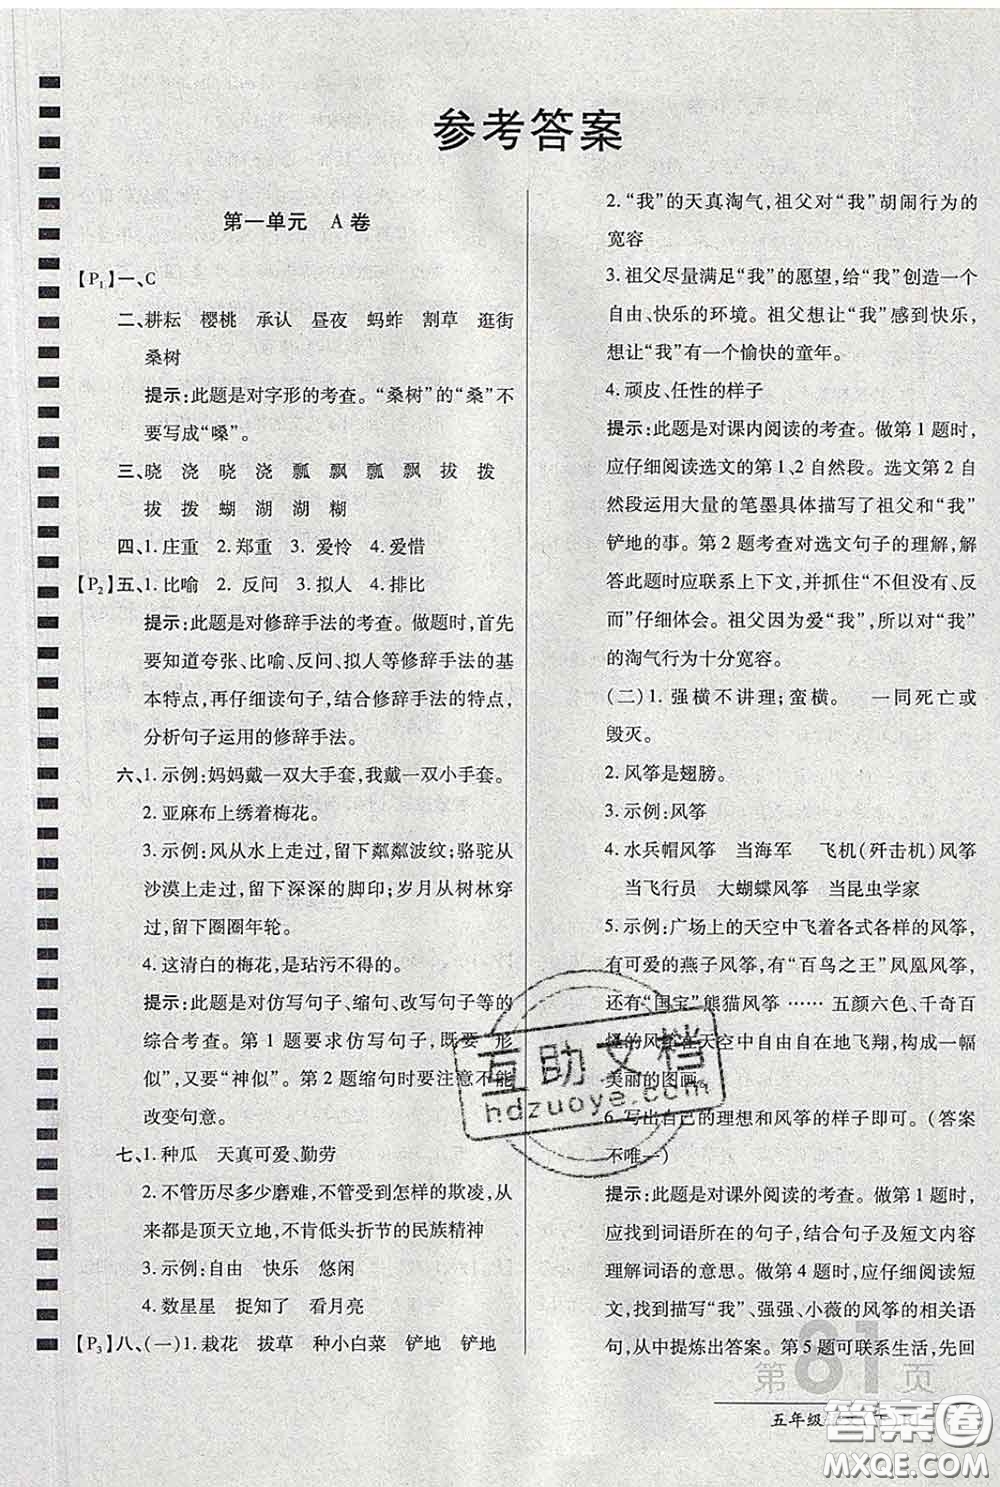 参考答案
第一单元　A卷
【P1】一、C
二、耕耘　樱桃　承认　昼夜　蚂蚱　割草　逛街
桑树
提示:此题是对字形的考查。“桑树”的“桑”不
要写成“嗓”。
三、晓　浇　晓　浇　瓢　飘　飘　飘　拔　拨
拔　拨　蝴　湖　湖　糊
四、1. 庄重　2. 郑重　3. 爱怜　4. 爱惜
【P2】五、1. 比喻　2. 反问　3. 拟人　4. 排比
提示:此题是对修辞手法的考查。做题时,首先
要知道夸张、比喻、反问、拟人等修辞手法的基
本特点,再仔细读句子,结合修辞手法的特点,
分析句子运用的修辞手法。
六、1. 示例:妈妈戴一双大手套,我戴一双小手套。
2. 亚麻布上绣着梅花。
3. 示例:风从水上走过,留下粼粼波纹;骆驼从
沙漠上走过,留下深深的脚印;岁月从树林穿
过,留下圈圈年轮。
4. 这清白的梅花,是玷污不得的。
提示:此题是对仿写句子、缩句、改写句子等的
综合考查。第1题要求仿写句子,既要“形
似”,又要“神似”。第2题缩句时要注意不能
改变句意。
七、1. 种瓜　天真可爱、勤劳
2. 不管历尽多少磨难,不管受到怎样的欺凌,从
来都是顶天立地,不肯低头折节的民族精神
3. 示例:自由　快乐　悠闲
4. 数星星　捉知了　看月亮
【P3】八、(一)1. 栽花　拔草　种小白菜　铲地　铲地
2. “我”的天真淘气,祖父对“我”胡闹行为的
宽容
3. 祖父尽量满足“我”的愿望,给“我”创造一个
自由、快乐的环境。祖父想让“我”感到快乐,
想让“我”有一个愉快的童年。
4. 顽皮、任性的样子
提示:此题是对课内阅读的考查。做第1题时,
应仔细阅读选文的第1、2自然段。选文第2自
然段运用大量的笔墨具体描写了祖父和“我”
铲地的事。第2题考查对选文句子的理解,解
答此题时应联系上下文,并抓住“不但没有、反
而”仔细体会。祖父因为爱“我”,所以对“我”
的淘气行为十分宽容。
(二)1. 强横不讲理;蛮横。　一同死亡或
毁灭。
2. 风筝是翅膀。
3. 示例:风筝
4. 水兵帽风筝　当海军　飞机(歼击机)风筝
当飞行员　大蝴蝶风筝　当昆虫学家
5. 示例:广场上的天空中飞着各式各样的风筝,
有可爱的燕子风筝,有“百鸟之王”凤凰风筝,
还有“国宝”熊猫风筝……五颜六色、千奇百
怪的风筝在天空中自由自在地飞翔,构成一幅
美丽的图画。
6. 写出自己的理想和风筝的样子即可。(答案
不唯一)
提示:此题是对课外阅读的考查。做第1题时,
应找到词语所在的句子,结合句子及短文内容
理解词语的意思。做第4题时,应仔细阅读短
文,找到描写“我”、强强、小薇的风筝的相关语
句,从中提炼出答案。第5题可联系生活,先回
互助文档
hdzuoye.com
第61页
五年级
答案圈
MXQE.COM